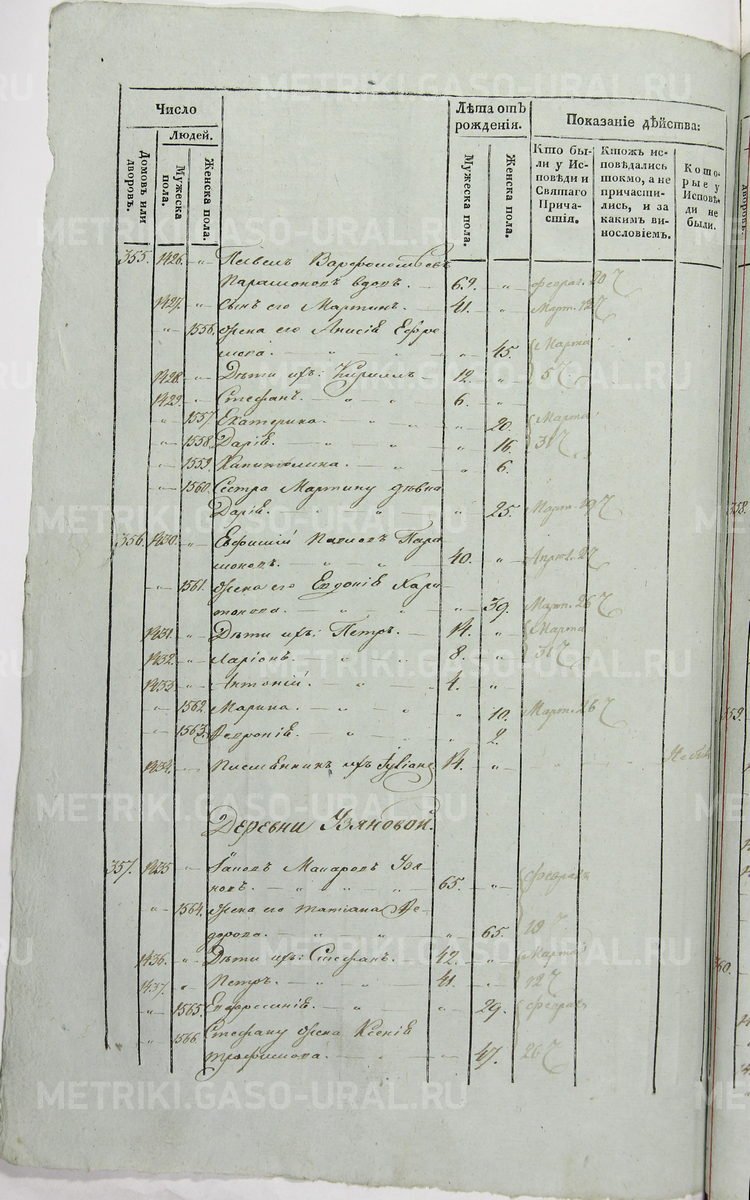 Число
Людей.
Домовъ или дворовъ.
Мужеска пола.
Женска пола.
Лѣта отъ рожденія.
Мужеска пола.
Женска пола.
Показаніе дѣйства:
Кто были у Исповѣди и Святаго Причастія.
Ктожъ исповѣдались токмо, а не причастились, и за какимъ винословіемъ.
Которые у Исповѣди не были.
355. 1426. „
Парамоновъ вдовъ. 69. „ феврал. 20
1427. „ Сынъ его Мартинъ. 41. „ Март. 12
„ 1556. Жена его Анисія Ефре
мова. „ 45. Марта
1428. „ Дѣти ихъ: Кириллъ 12. „ 5
1429. „ Стефанъ. 6. „
„ 1557. Екатерина. „ 20. Марта
„ 1558. Дарія. „ 16. 31
„ 1559. Капитолина. „ 6.
„ 1560. Сестра Мартину дѣвка
Дарія. „ 25. Март. 19
356. 1430. „ Евфимій Павловъ Пара
моновъ. 40. „ Апрѣл. 27
„ 1561. Жена его Евдокія Хари
тонова. „ 39. Март. 26
1431. „ Дѣти ихъ: Петръ. 14. „ Марта
1432. „ Ларіонъ. 8. „ 31
1433. „ Антоній. 4. „
„ 1562. Марина. „ 10. Март. 26
„ 1563. Февронія. „ 2.
1434. „ Племянникъ ихъ Іуліанъ 14. „
Деревни Узяновой.
357. 1435 „ Макаровъ Узя
новъ. 65. „ феврал
„ 1564. Жена его Татіана Ѳе-
дорова. „ 65. 19
1436. „ Дѣти ихъ: Стефанъ. 42. „ Марта
1437. „ Петръ. 41. „ 12
„ 1565. Евфросинія. „ 29. феврал
„ 1566 Стефану жена Ксенія
Трофимова. „ 47. 26
358.
359.
360.
METRIKI.GASO-URAL.RU